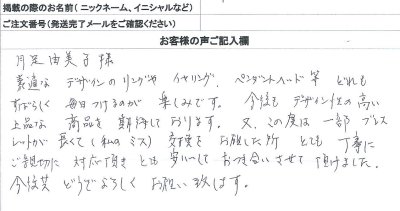 掲載の際のお名前（ニックネーム、イニシャルなど）
ご注文番号（発送完了メールをご確認ください）
お客様の声ご記入欄
月足由美子様
素適な デザインのリングや イヤリング、ペンダントヘッド等 どれも
すばらしく 毎日つけるのが 楽しみです。 今後も デザイン性の高い
上品な 商品を 期待しております。 又、この度は 一部 ブレス
レットが 長くて（私のミス） 交換を お願した所 とても 丁寧に
ご親切に 対応頂き とても 安心して おつき合いさせて 頂けました。
今後共 どうぞよろしく お願い致します。